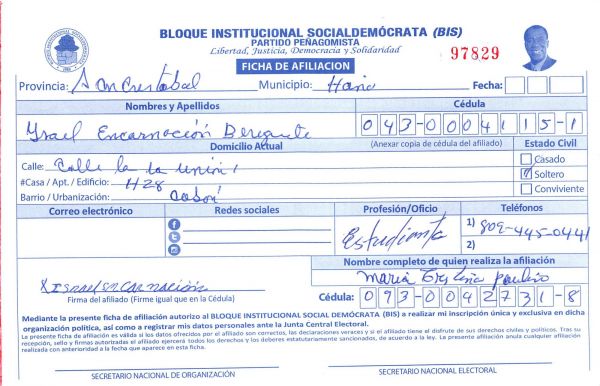 BLOQUE INSTITUCIONAL SOCIALDEMÓCRATA (BIS)
PARTIDO PEÑAGOMISTA
Libertad, Justicia, Democracia y Solidaridad
97829
FICHA DE AFILIACION
Provincia: San Cristobal Municipio: Haina Fecha:
Nombres y Apellidos Cédula
Ysrael Encarnación 043-0004115-1
Domicilio Actual (Anexar copia de cédula del afiliado) Estado Civil
Calle: Calle la unión Casado
#Casa / Apt. / Edificio: H28 Soltero
Barrio / Urbanización: Conviviente
Correo electrónico Redes sociales Profesión/Oficio Teléfonos
Estudiante 1) 809-445-0441
2)
Nombre completo de quien realiza la afiliación
Maria Paulino
Israel encarnación
Firma del afiliado (Firme igual que en la Cédula) Cédula: 093-0042731-8
Mediante la presente ficha de afiliación autorizo al BLOQUE INSTITUCIONAL SOCIAL DEMÓCRATA (BIS) a realizar mi inscripción única y exclusiva en dicha
organización política, así como a registrar mis datos personales ante la Junta Central Electoral.
La presente ficha de afiliación es válida si los datos ofrecidos por el afiliado son correctos, las declaraciones veraces y si el afiliado tiene el disfrute de sus derechos civiles y políticos. Tras su
recepción, sello y firmas autorizadas el afiliado ejercerá todos los derechos y los deberes estatutariamente sancionados, de acuerdo a la ley. La presente afiliación anula cualquier afiliación
realizada con anterioridad a la fecha que aparece en esta ficha.
SECRETARIO NACIONAL DE ORGANIZACIÓN SECRETARIO NACIONAL ELECTORAL